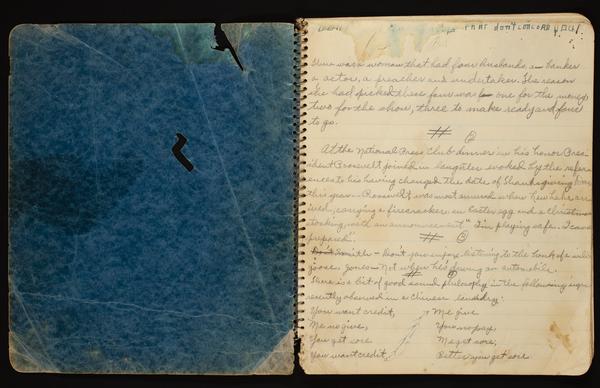 that don't concern you!
There was a woman that had four husbands, a banker
a actor, a preacher and undertaker. The reason
she had picked these four was one for the money
two for the show, three to make ready and four
to go.
At the National Press Club dinner in his honor Pres-
ident Roosevelt joined in laughter evoked by the refer-
ences to his having changed the date of Thanksgiving
this year. Roosevelt was most amused when
carrying a firecracker an Easter egg and a Christmas
stocking, with an announcement "I'm playing safe. I came
prepared".
Smith - Don't you enjoy listening to the honk of a wild
goose, Jones - Not when he's driving an automobile.
There is a bit of good sound philosophy in the following sign
recently observed in a Chinese laundry:
You want credit,
Me no give,
You get sore.
You want credit,
Me give
You no pay,
Me get sore,
Better you get sore